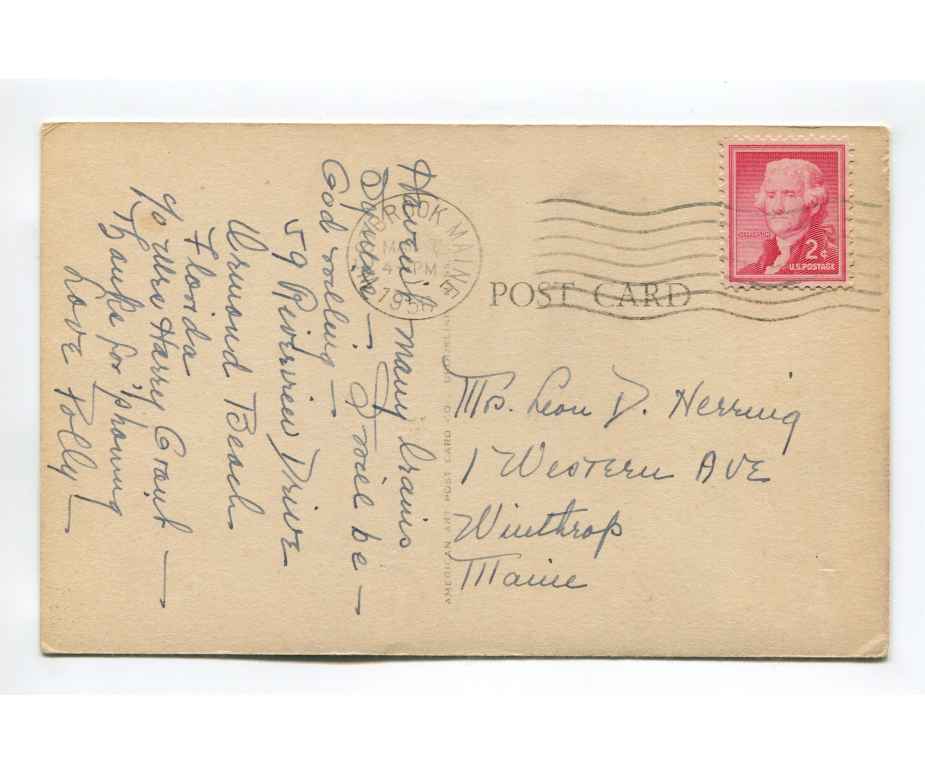 Haven't many brains
I will be —
God willing —
59 Riverview Drive
Ormond Beach
Florida
℅ Mrs Harry Grant —
Thanks for 'phoning
Love Polly —
ROOK MAINE
4 PM
1956
POST CARD
2¢
U.S. POSTAGE
AMERICAN ART POST CARD CO.
Mrs. Leon D. Herring
1 Western Ave
Winthrop
Maine